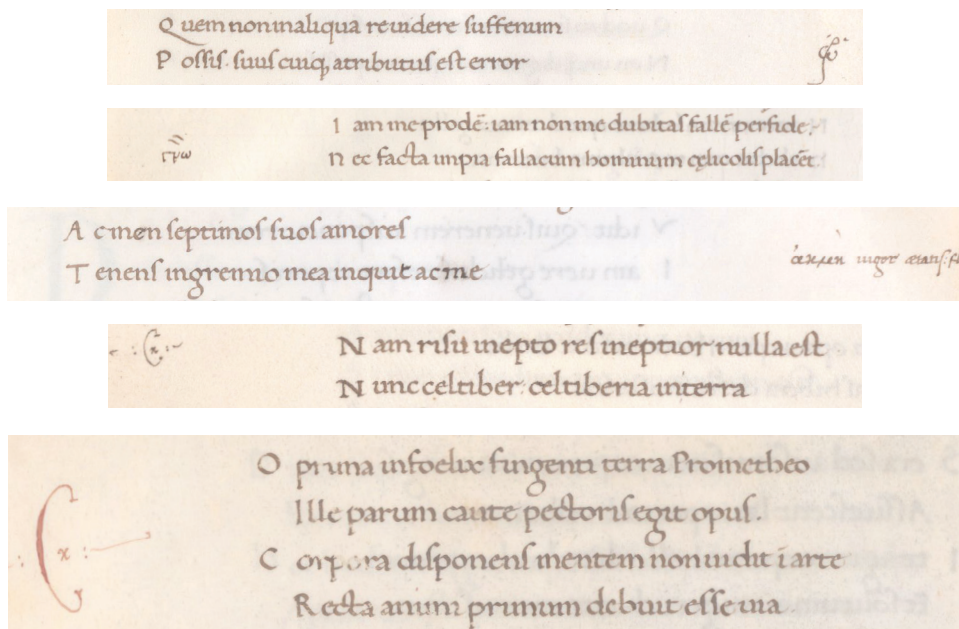 Q uem non inaliqua re uidere suffenum
P ossis. suus cuiq; atributus est error
I am me prodē: iam non me dubitas fallē perfide.
N ec facta impia fallacum hominum cęlicolis placēt
A cmen septimos suos amores
T enens ingremio mea inquit acme
N am risū inepto res ineptior nulla est
N unc celtiber: celtiberia in terra
O prima infoelix fingenti terra Prometheo
Ille parum caute pectoris egit opus.
C orpora disponens mentem non uidit ī arte
Recta animi primum debuit esse uia